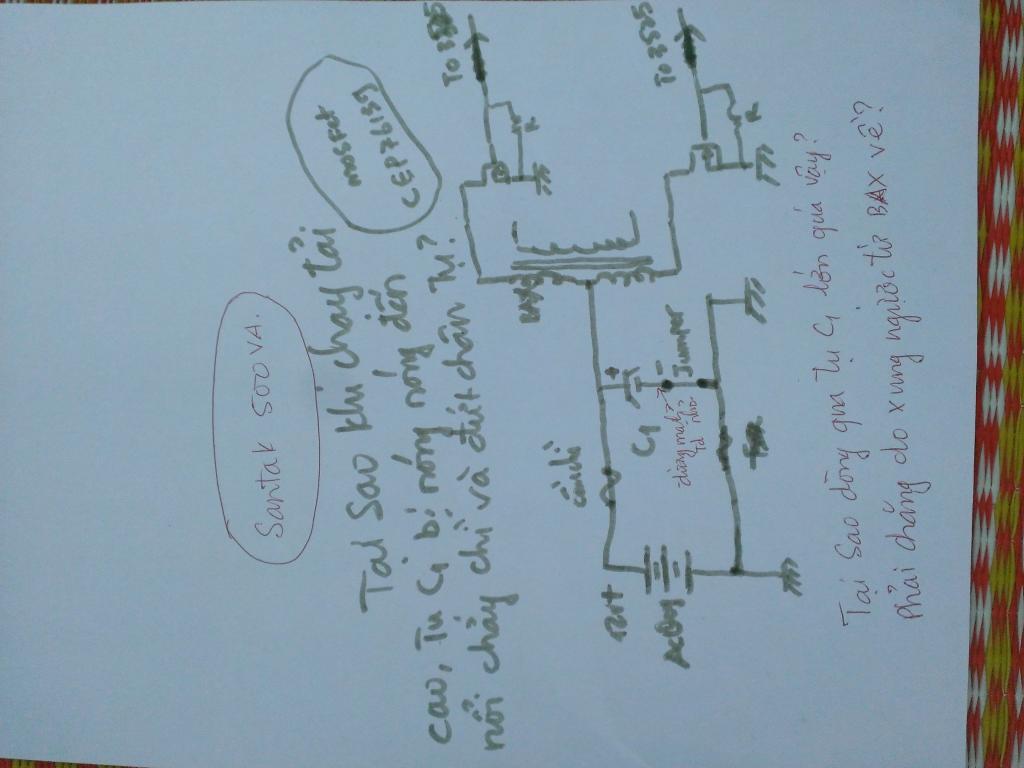 Santak 500 VA.
Tại Sao khi chạy tải
cao, Tụ C1 bị nóng nóng đến
nỗi chảy chì và đứt chân Tụ?
mosfet
CEP76139
To 3525
R
To 3525
R
BAX
cầu chì
C1
+
-
Jumper
12V
Acquy
Tại Sao dòng qua tụ C1 lớn quá vậy?
Phải chăng do xung ngược từ BAX về?